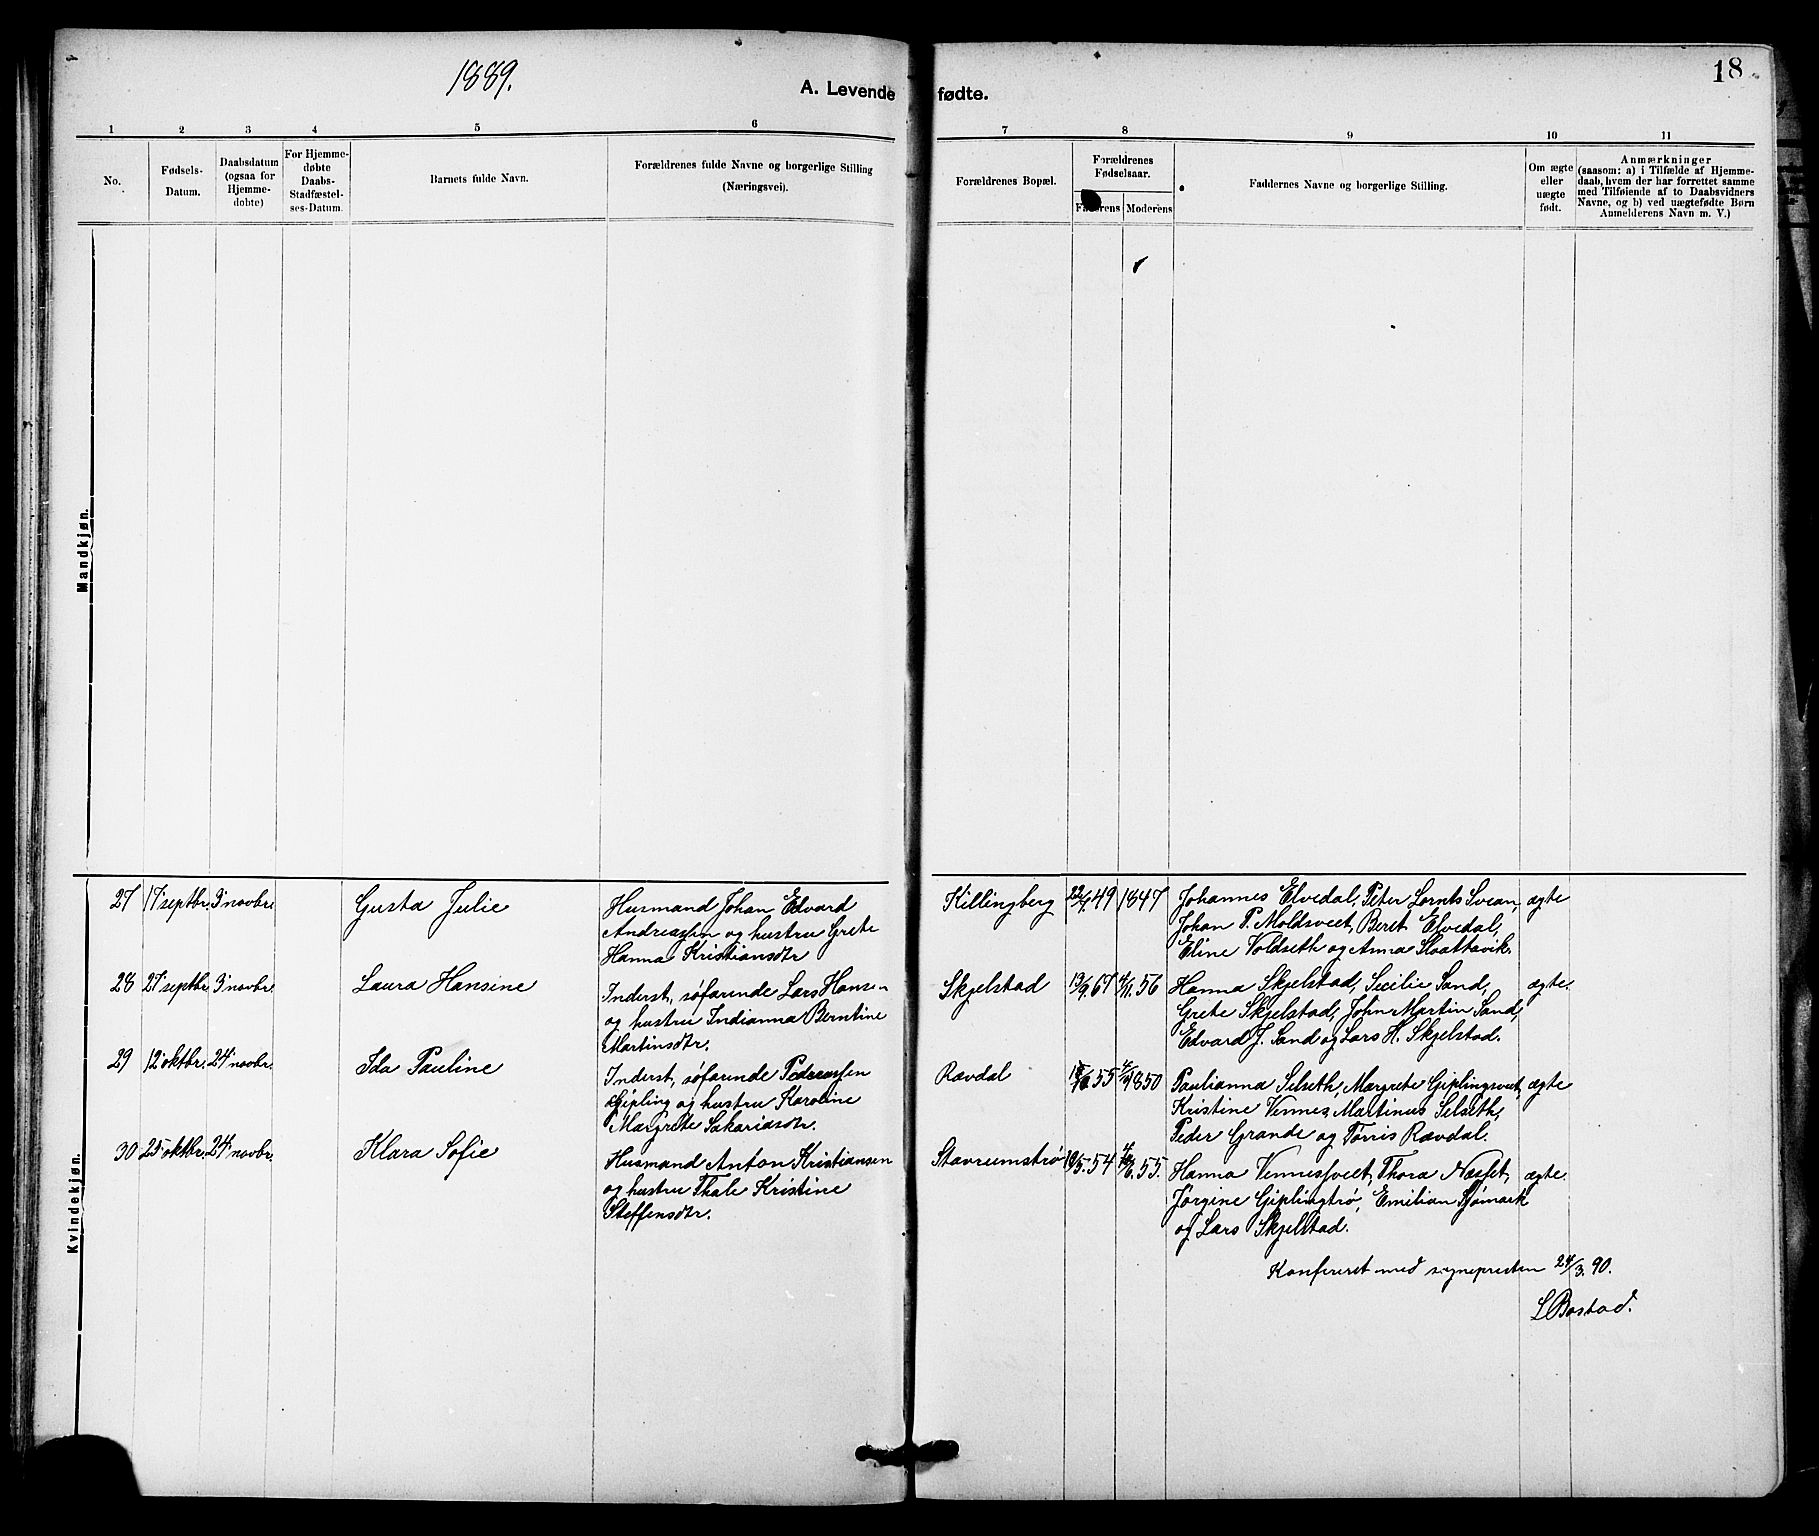 1889.
A. Levende fødte.
18
1 2 3 4 5 6 7 8 9 10 11
No.
Fødsels-
Datum.
Daabsdatum
(ogsaa for
Hjemme-
døbte)
For Hjemme-
døbte
Daabs-
Stadfæstel-
ses-Datum.
Barnets fulde Navn.
Forældrenes fulde Navne og borgerlige Stilling
(Næringsvei).
Forældrenes Bopæl.
Forældrenes
Fødselsaar.
Faderens Moderens
Faddernes Navne og borgerlige Stilling.
Om ægte
eller
uægte
født.
Anmærkninger
(saasom: a) i Tilfælde af Hjemme-
daab, hvem der har forrettet samme
med Tilføiende af to Daabsvidners
Navne, og b) ved uægtefødte Børn
Anmelderens Navn m. V.)
Mandkjøn.
Kvindekjøn.
27 17 septbr. 3 novbr. Gusta Julie
Husmand Johan Edvard
Andreassen og hustru Grete
Hanna Kristiansdtr
Killingberg 22/9 49 1847
Johannes Elvedal, Peter Lornts Svean,
Johan P. Moldsveet, Beret Elvedal,
Eline Voldseth og Anna Slaattavik.
ægte
28 27 septbr. 3 novbr. Laura Hansine
Inderst, søfarende Lars Hansen
og hustru Indianna Berntine
Martinsdtr.
Skjelstad 13/9 67 4/11. 56
Hanna Skjelstad, Secilie Sand,
Grete Skjelstad, John Martin Sand,
Edvard J. Sand og Lars H. Skjelstad.
ægte.
29 12 oktbr. 24 novbr. Ida Pauline
Inderst, søfarende Pedersen
Gjipling og hustru Karoline
Margrete Sakariasdtr.
Rævdal 55 1850
Paulianna Selseth, Margrete Giplingsveet,
Kristine Vennes, Martinus Selseth,
Peder Grande og Tørris Rævdal.
ægte
30 25 oktbr. 24 novbr. Klara Sofie
Husmand Anton Kristiansen
og hustru Thale Kristine
Steffensdtr.
Stavrumstrø 19/5. 54 55.
Hanna Vennessveet, Thora Næsset,
Jørgine Giplingtrø, Emilian Sjømark
og Lars Skjelstad.
ægte.
Konfereret med sognepresten 24/3. 90.
L Bostad.